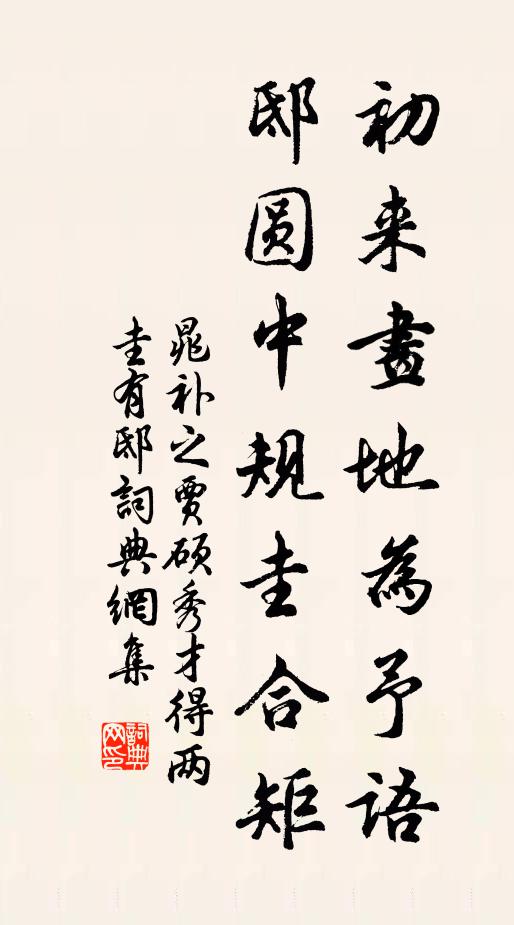 初来畫地為予語
邸圆中规圭合矩
晁补之贾硕秀才得两
圭有邸詞典網集
詞典网印